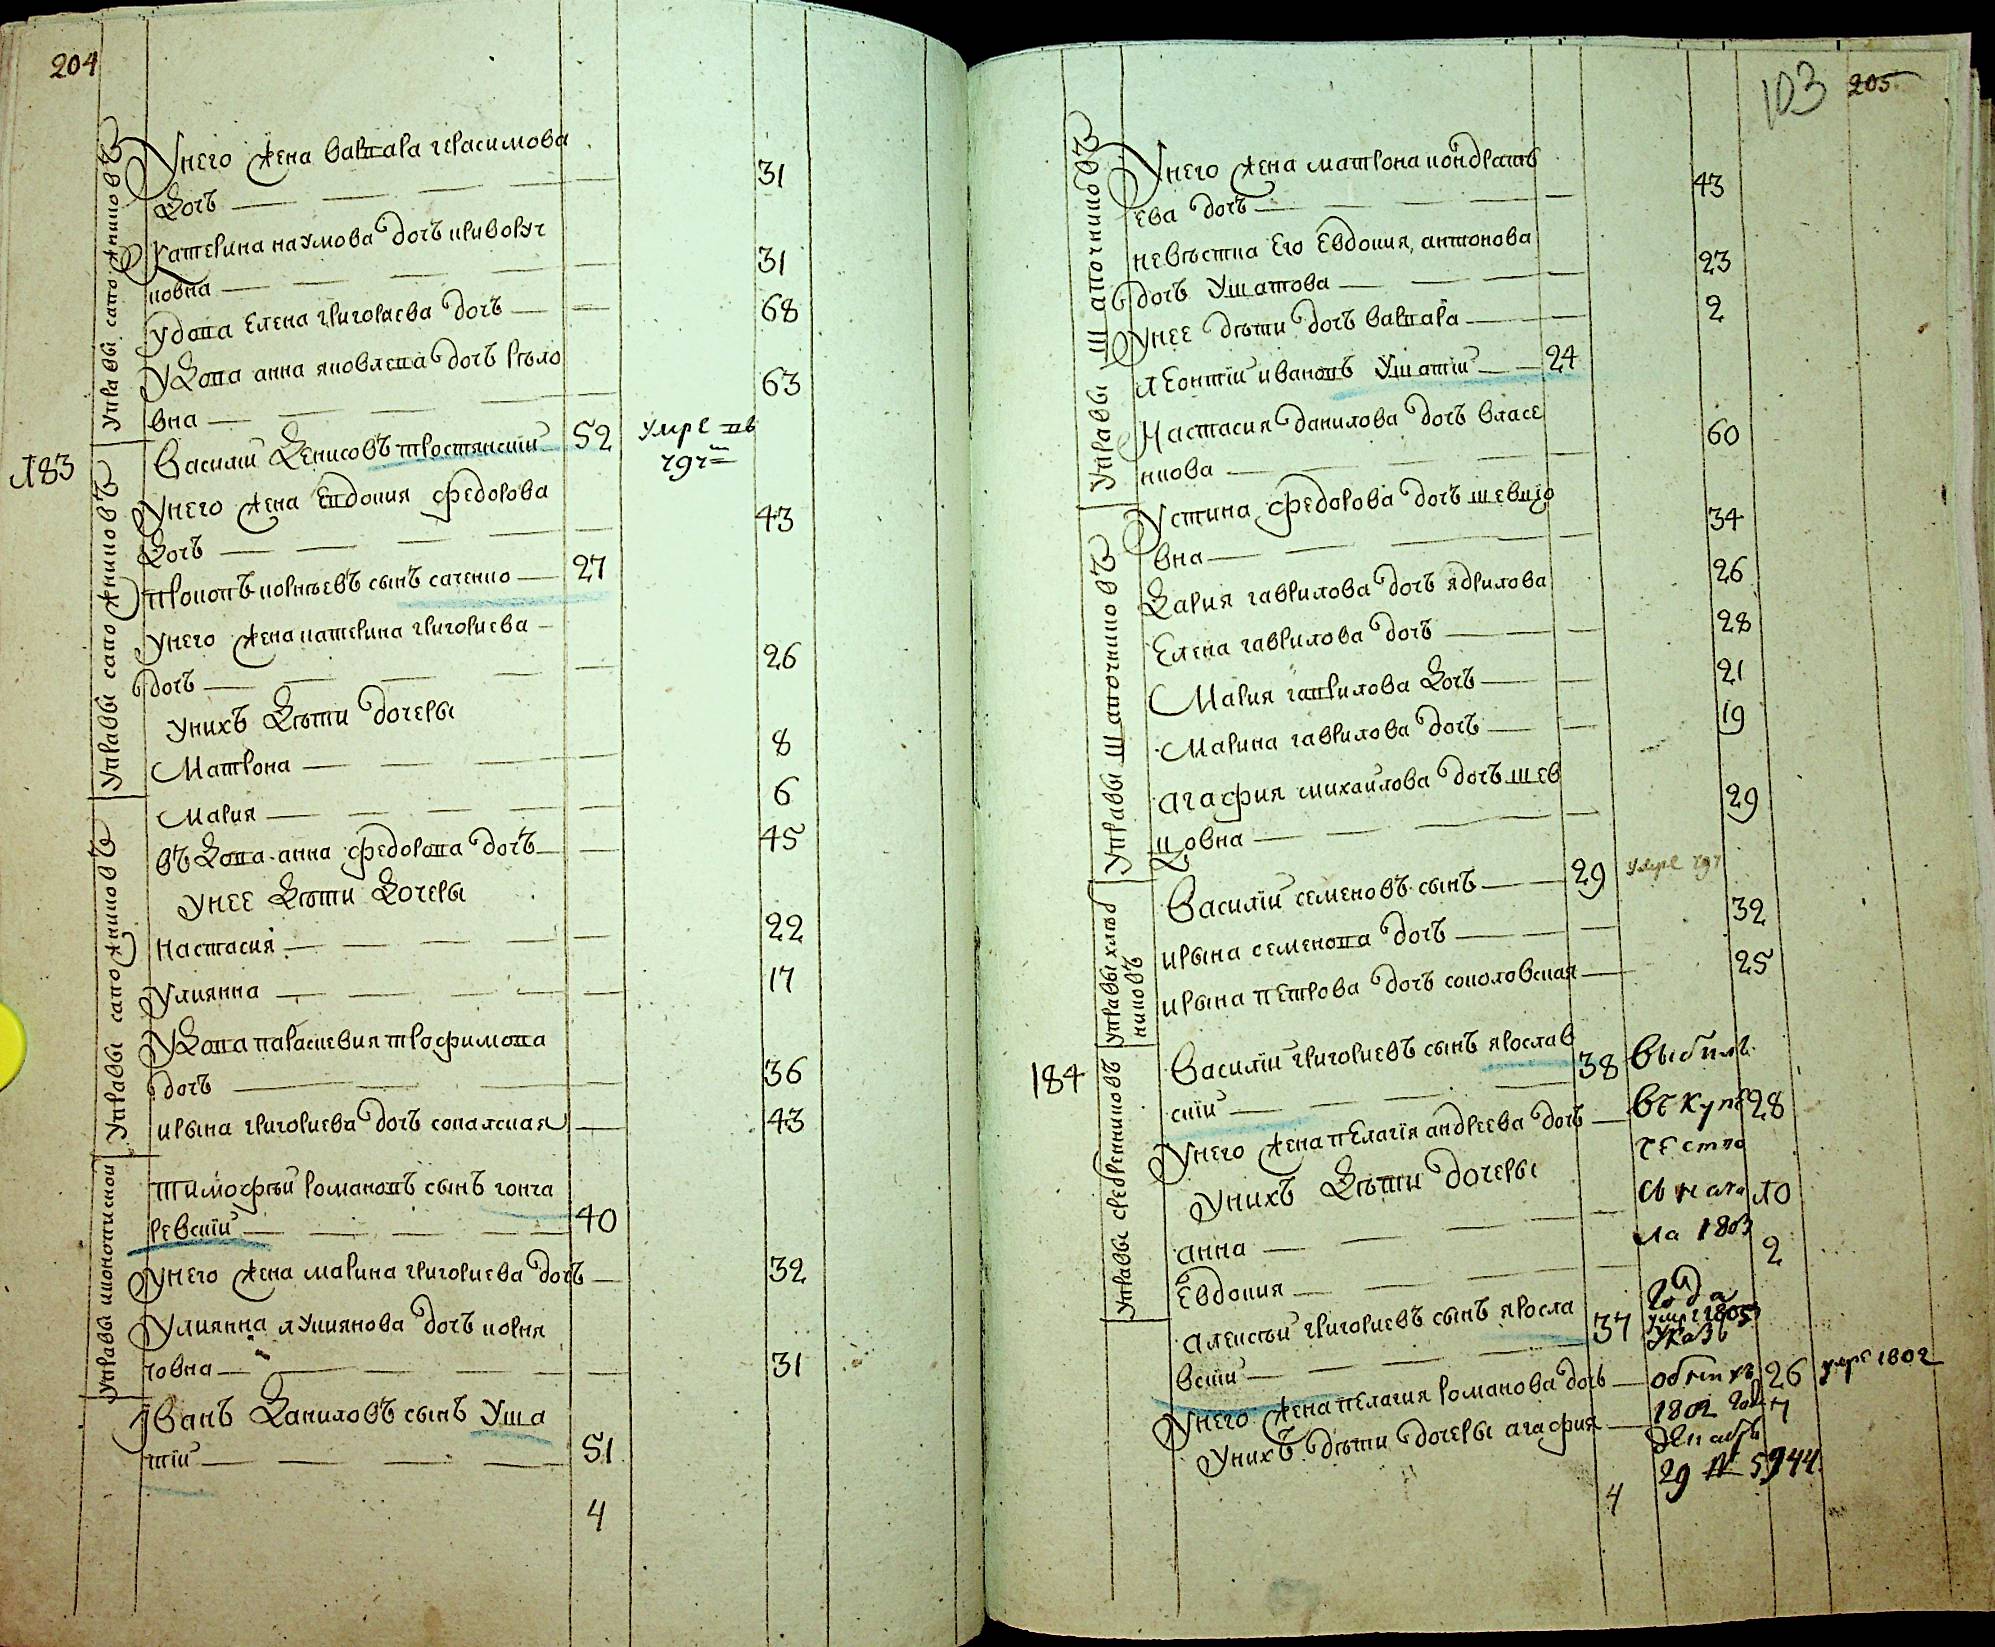 204
Управы сапожниковъ
Унего жена варвара герасимова
дочъ 31
Катерина наумова дочъ криворуч
ковна 31
удова Елена григораева дочъ 68
удова анна яковлева дочъ
вна 63
183
Управы сапожниковъ
василий денисовъ тростянский 52 умре в
797
унего жена Евдокия федорова
дочъ 43
прокопъ корнѣевъ сынъ саченко 27
унего жена катерина григориева
дочъ 26
унихъ дѣти дочеры
матрона 8
мария 6
Управы сапожниковъ
въдова анна федорова дочъ 45
унее дѣти дочеры
настасия 22
улиянна 17
удова параскевия трофимова
дочъ 36
ирына григориева дочъ 43
управы иконописной
тимофѣй романовъ сынъ гонча
ревский 40
унего жена марина григориева дочъ 32
улиянна лукиянова дочъ корня
човна 31
Иванъ даниловъ сынъ Уша
ткий 51
4
103 205
Управы Шапочниковъ
Унего жена матрона кондрать
ева дочъ 43
невѣстка Его Евдокия антонова
дочъ Ушаткова 23
унее дѣти дочъ варвара 2
леонтий ивановъ Ушаткий 24
Настасия данилова дочъ власе
нкова 60
Управы Шапочниковъ
Устина федорова дочъ шевцо
вна 34
дария гаврилова дочъ ядрилова 26
Елена гаврилова дочъ 28
Мария гаврилова дочъ 21
Марина гаврилова дочъ 19
агафия михайлова дочъ шев
цовна 29
управы хлѣб
никовъ
василий семеновъ сынъ 29 умре 797
ирына семенова дочъ 32
ирына петрова дочъ соколовская 25
184
управы сребренниковъ
василий григориевъ сынъ ярослав
ский 38 выбилъ
унего жена пелагия андреева дочъ въ купе 28
чество
унихъ дѣти дочеры
анна съ нача 10
ла 1803
Евдокия 2
года
алексѣй григориевъ сынъ яросла
вский 37 умре 1805
указъ
унего жена пелагия романова дочъ 26 умре 1802
унихъ дѣти дочеры агафия 1802 года 7
декабр
29 № 5944
4